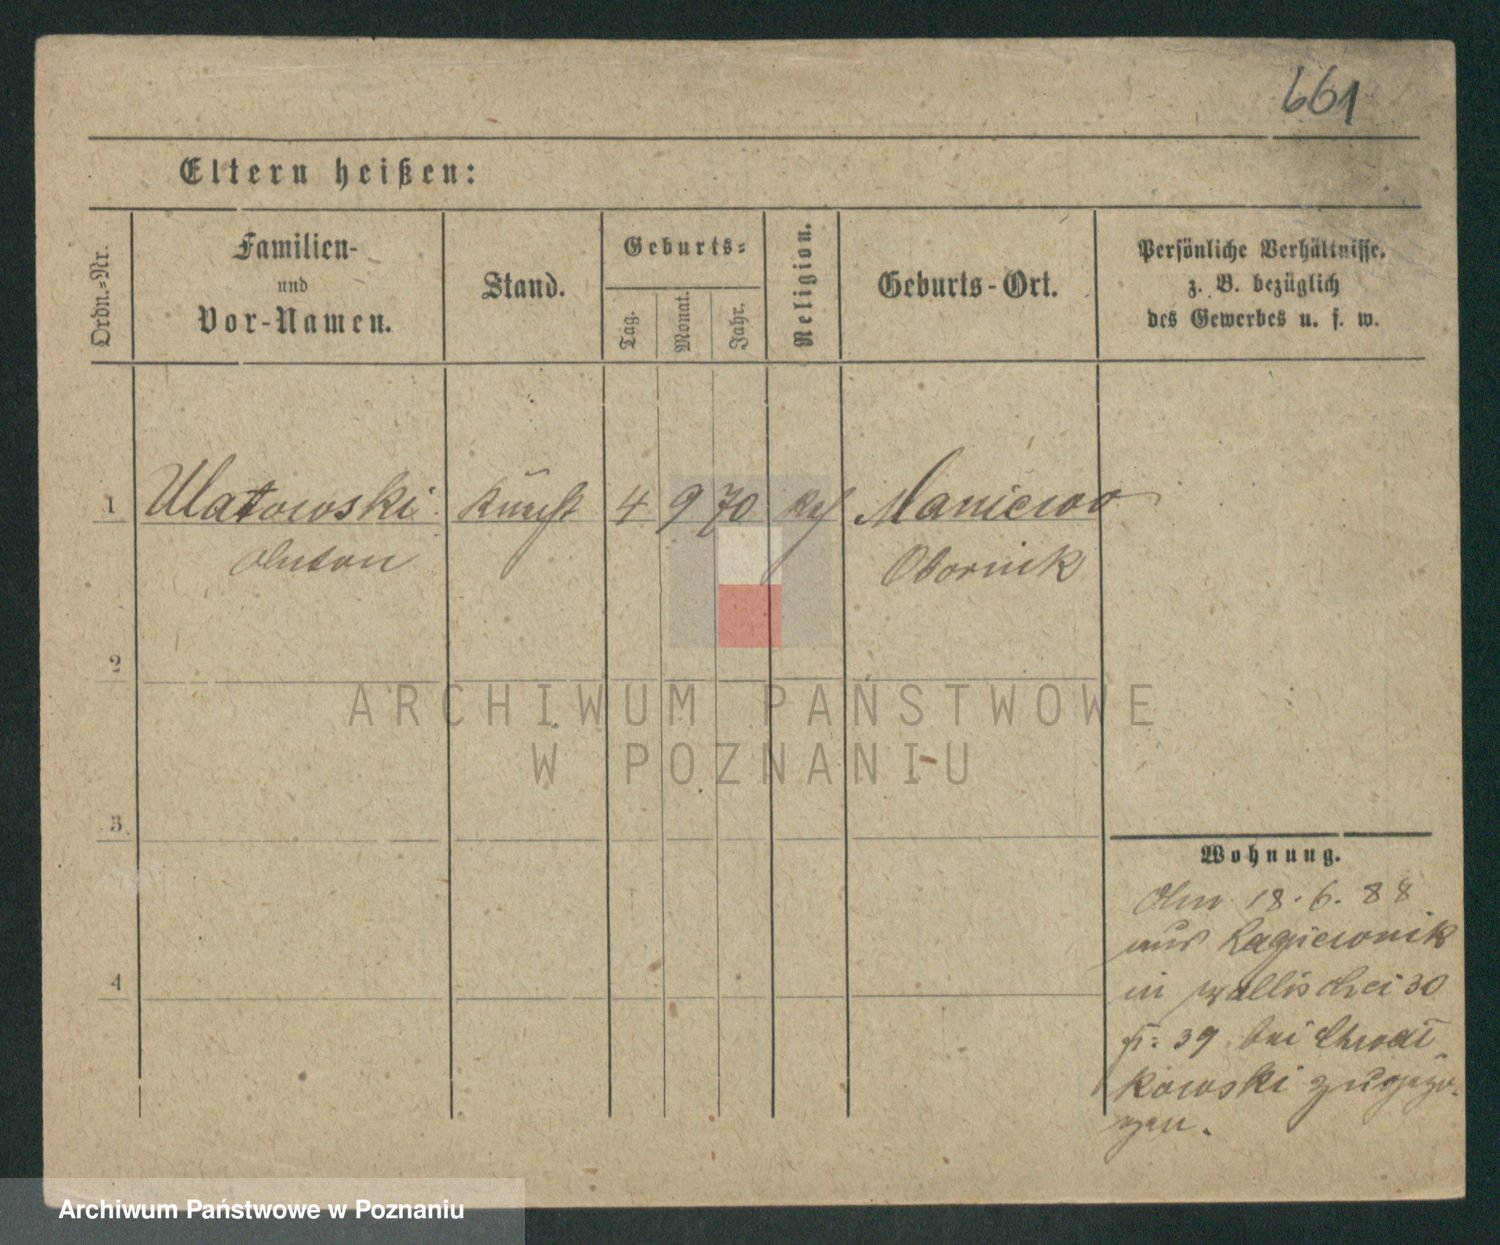 661
Eltern heißen:
Ordn.-Nr.
Familien-
und
Vor-Namen.
Stand.
Geburts-
Tag.
Monat.
Jahr.
Religion.
Geburts-Ort.
Persönliche Verhältnisse.
z. B. bezüglich
des Gewerbes u. s. w.
1 Ulatowski 4 9 70 Maniewo
Anton Obornik
2
ARCHIWUM PAŃSTWOWE
W POZNANIU
3
Wohnung.
Am 18.6.88
aus
4
in Wallischei 30
39 bei Chwał
kowski zugezo-
gen.
Archiwum Państwowe w Poznaniu